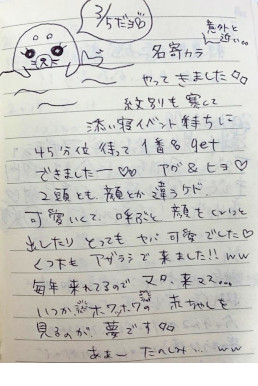 3/5だヨ
意外と
近い。。
名寄カラ
やってきました
紋別も寒くて
添い寝イベント待ちに
45分位待って1番でget
できましたー♡ アグ&ヒヨ♡
2頭とも、顔とか違うケド、
可愛いくて、呼ぶと顔を
出したりとってもヤバ可愛でした♡
くつ下もアザラシで来ました!! ww
毎年来れてるのでマタ、来マス...
いつかホワホワの赤ちゃんを
見るのが夢です
あぁー たのしみ... ww